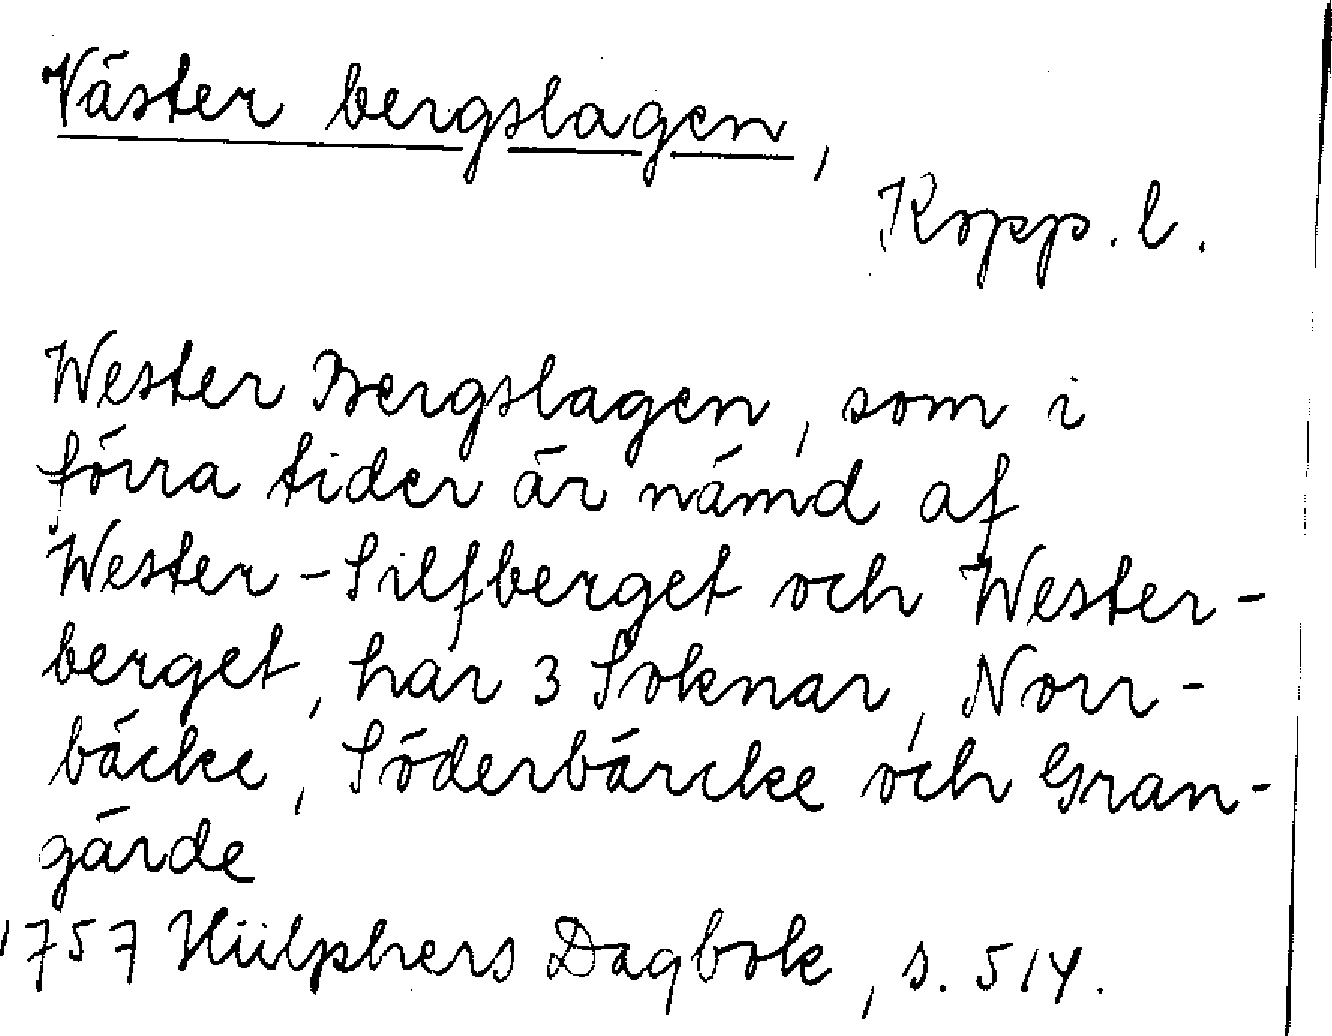 Väster bergslagen,
Kopp. l.
Wester Bergslagen, som i
förra tider är nämd af
Wester-Silfberget och Wester-
berget, har 3 Soknar, Norr-
bäcke, Söderbärcke och Gran-
gärde
1757 Hülphers Dagbok, s. 514.